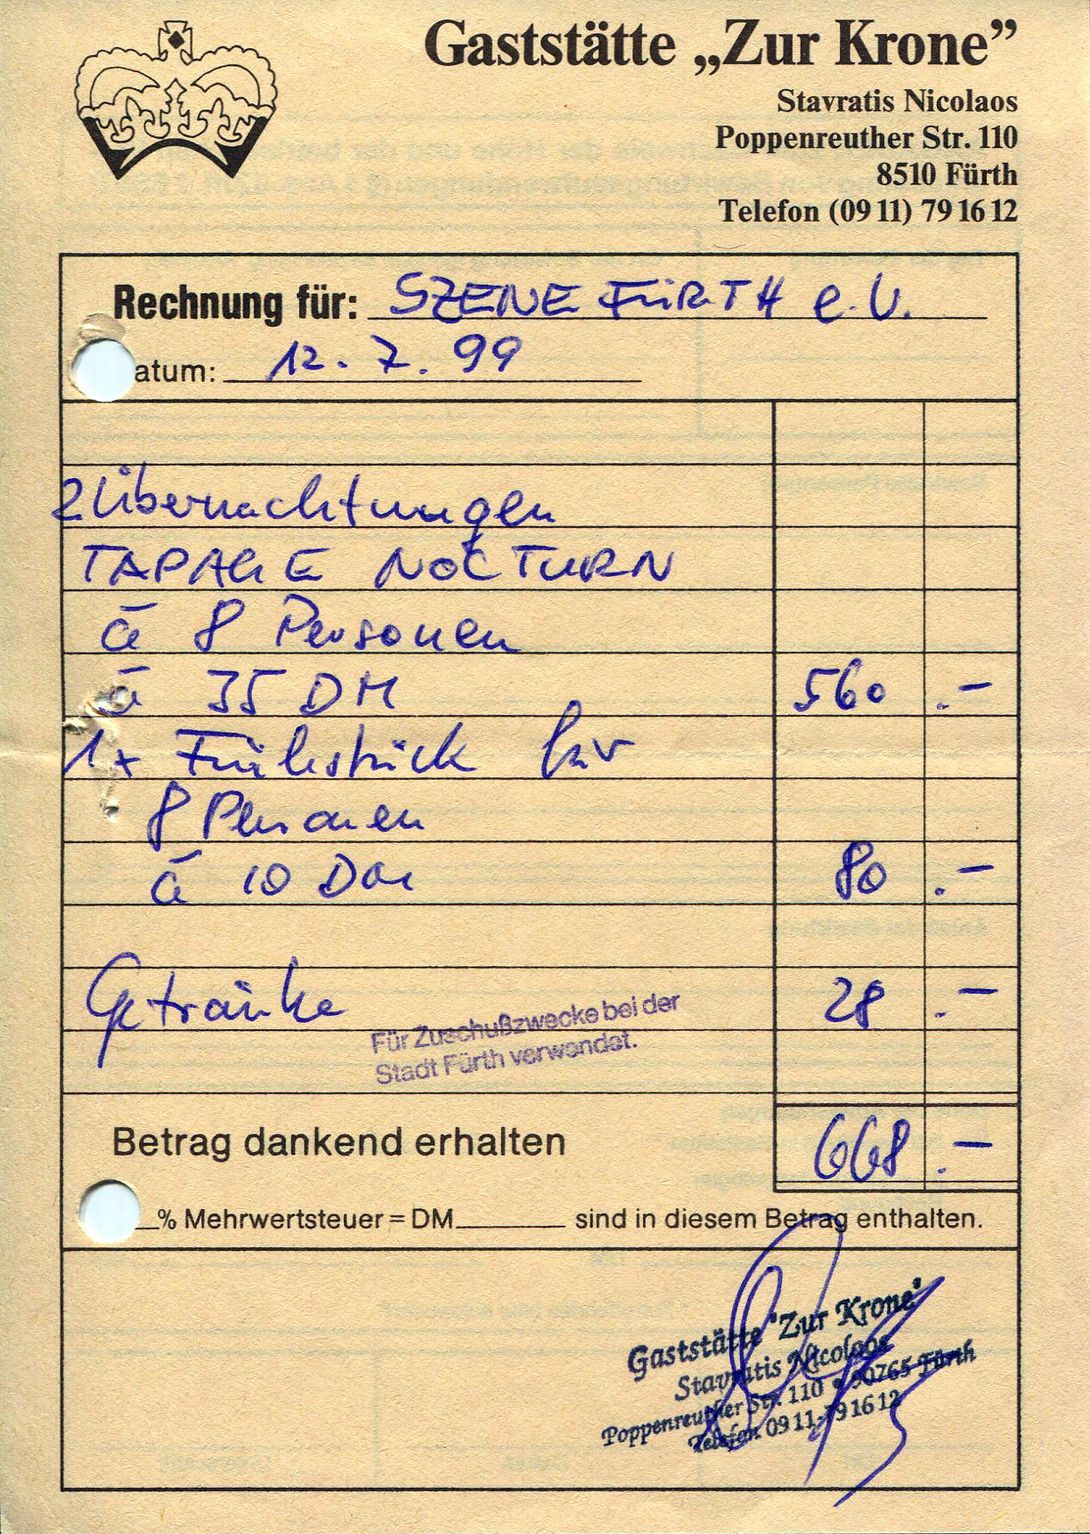 Gaststätte „Zur Krone”
Stavratis Nicolaos
Poppenreuther Str. 110
8510 Fürth
Telefon (09 11) 79 16 12
Rechnung für: SZENE FÜRTH e.V.
atum: 12.7.99
2 Übernachtungen
TAPAGE NOCTURN
à 8 Personen
à 35 DM 560.–
1x Frühstück für
8 Personen
à 10 DM 80.–
Getränke 28.–
Für Zuschußzwecke bei der
Stadt Fürth verwendet.
Betrag dankend erhalten 668.–
% Mehrwertsteuer = DM sind in diesem Betrag enthalten.
Gaststätte "Zur Krone"
Stavratis Nicolaos
Poppenreuther Str. 110 • 90765 Fürth
Telefon 09 11-79 16 12